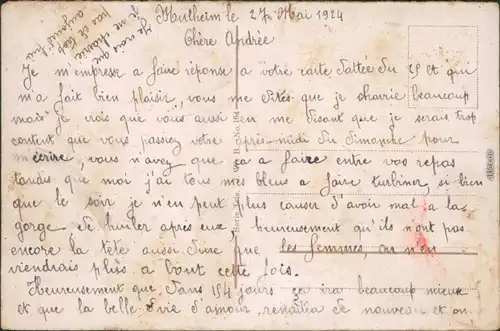 Montheim le 27 Mai 1924
Chère Andrée
Je m'empresse a faire réponse a votre carte datée du 25 et qui
m'a fait bien plaisir, vous me dites que je charie beaucoup
mais je crois que vous aussi en me disant que je serais trop
content que vous passiez votre après-midi du dimanche pour
m'écrire, vous n'avez que ça a faire entre vos repas
tandis que moi j'ai tous mes bleus a faire turbiner, si bien
que le soir je n'en peut plus causer d'avoir mal a la
gorge de hurler après eux, heureusement qu'ils n'ont pas
encore la tête aussi dure que les femmes, on n'en
viendrais plus a bout cette fois.
Heureusement que dans 154 jours ça ira beaucoup mieux
et que la belle vie d'amour, de nouveau et on
Je vois que
je ne charie
pas et trop
aujourd'hui